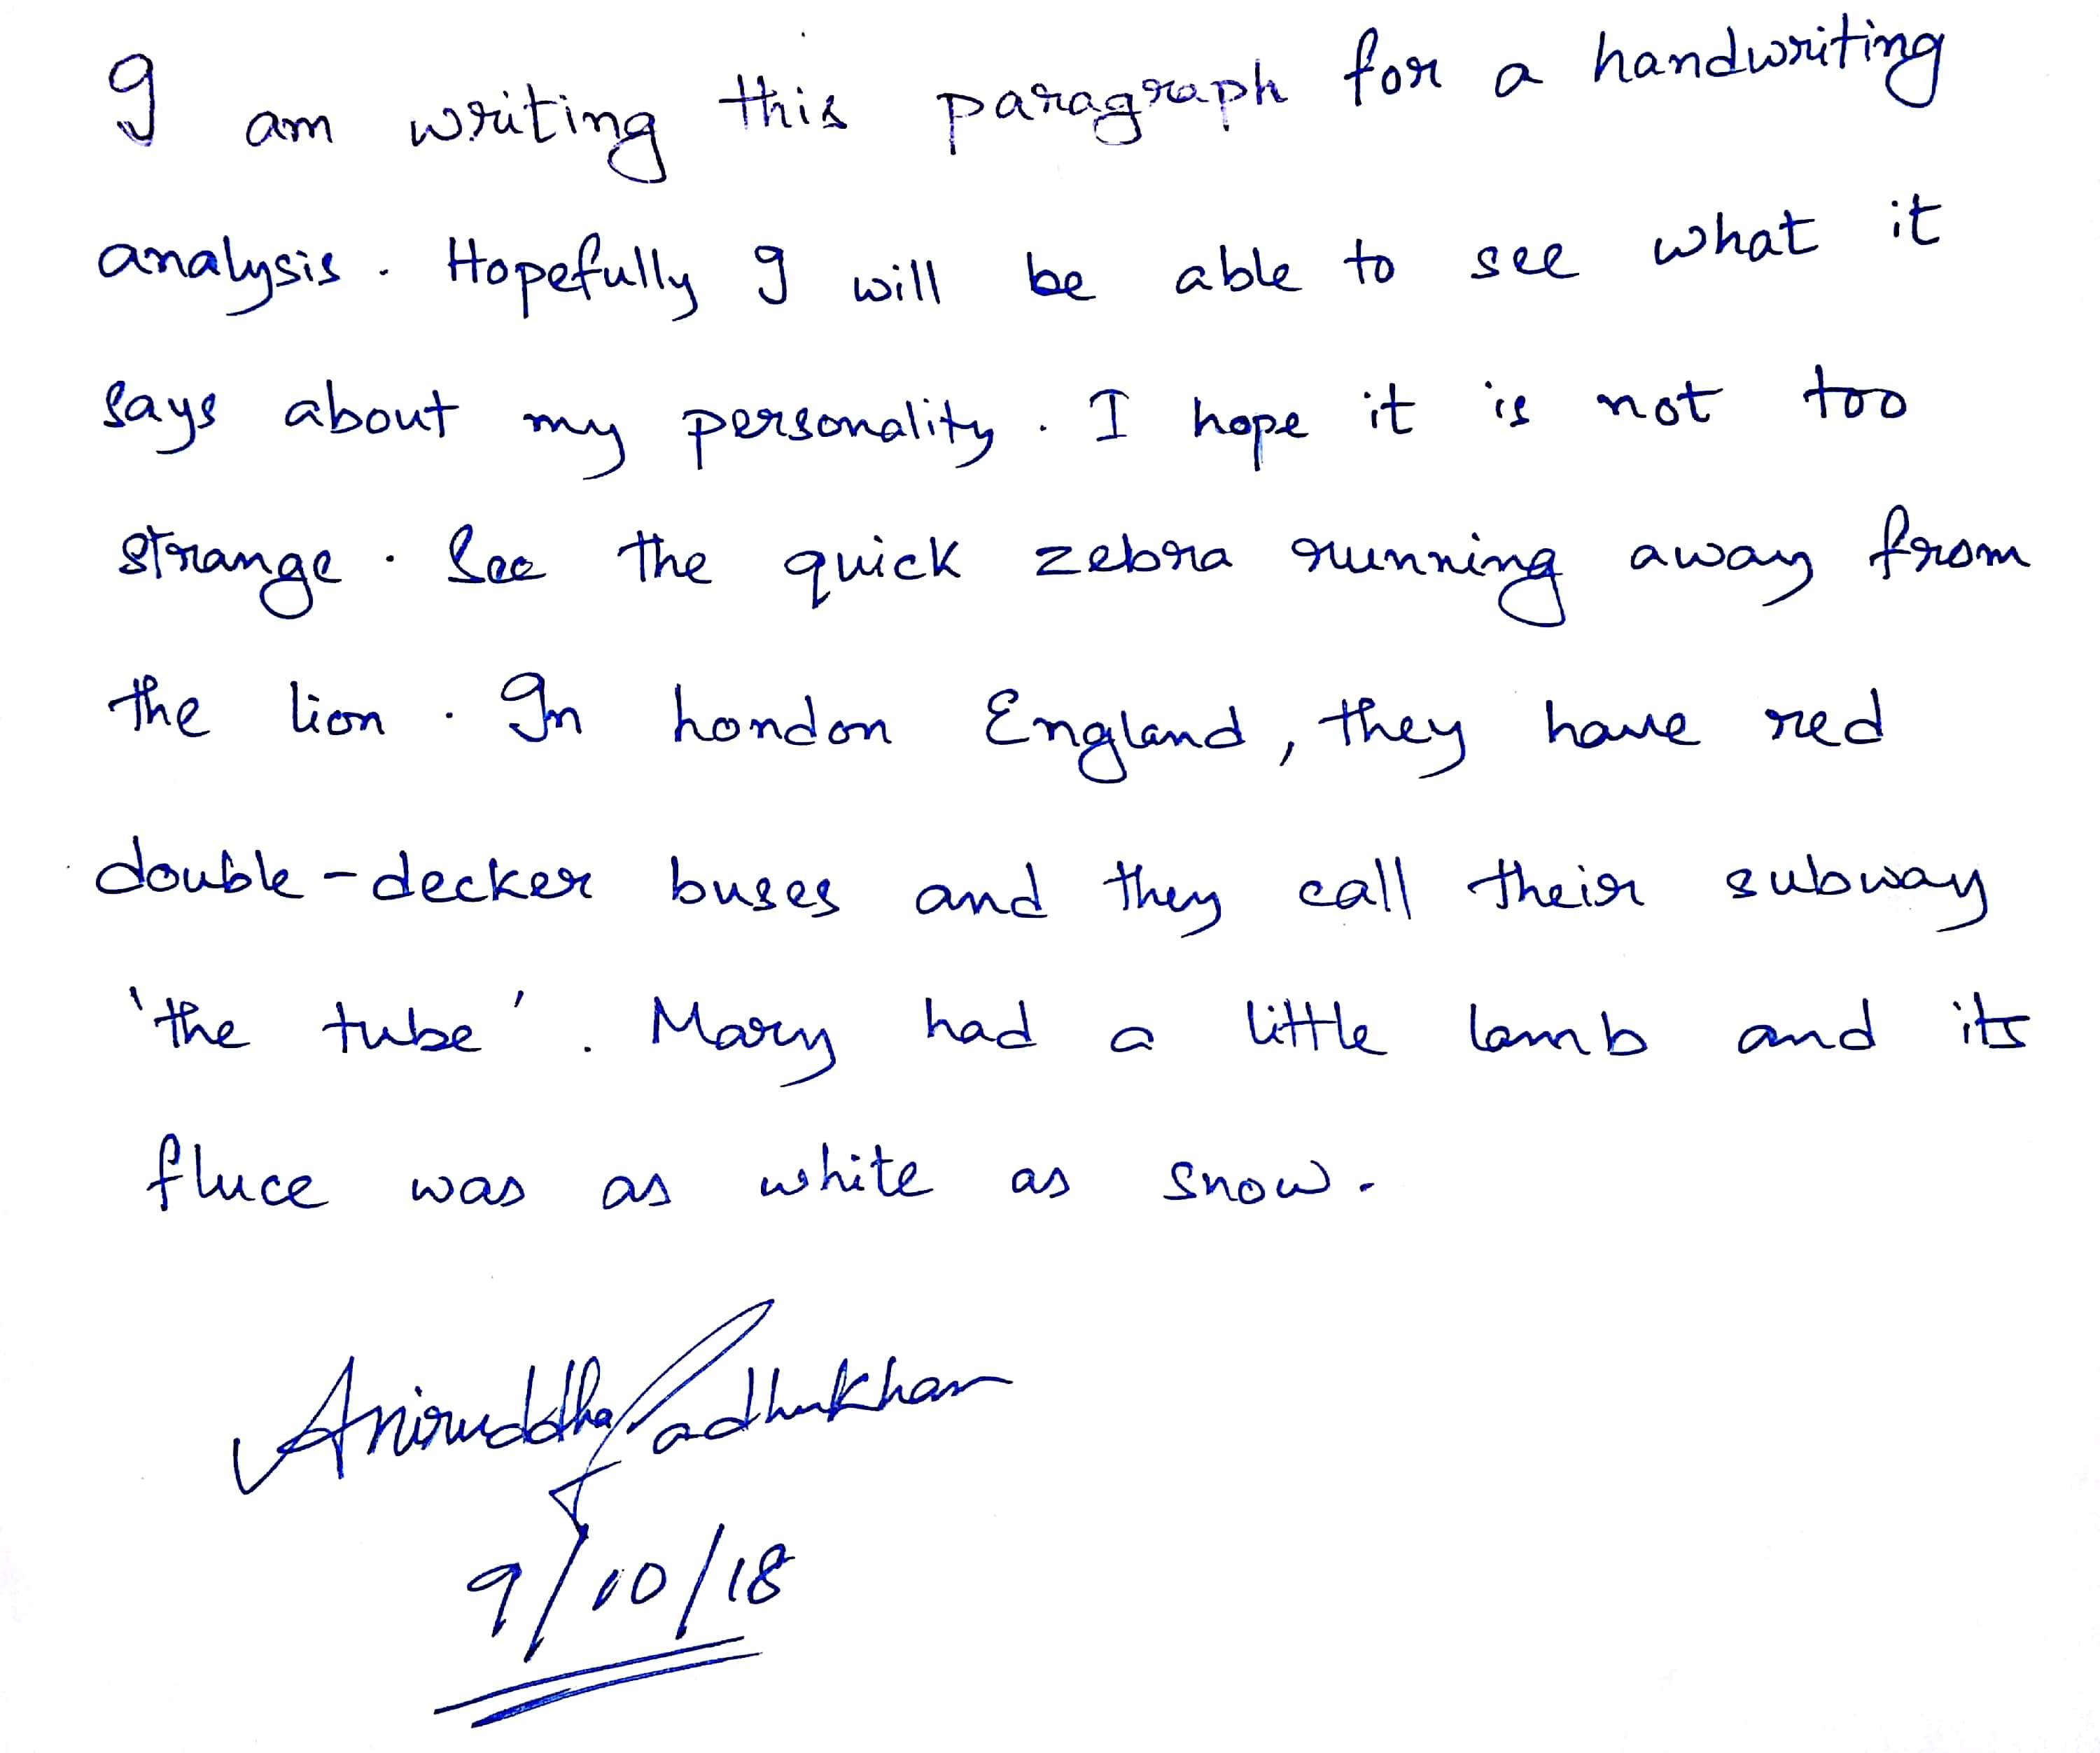 I am writing this paragraph for a handwriting
analysis. Hopefully I will be able to see what it
says about my personality. I hope it is not too
strange. See the quick zebra running away from
the lion. In London England, they have red
double-decker buses and they call their subway
'the tube'. Mary had a little lamb and its
fluce was as white as snow.
Aniruddha Sadhukhan
9/10/18